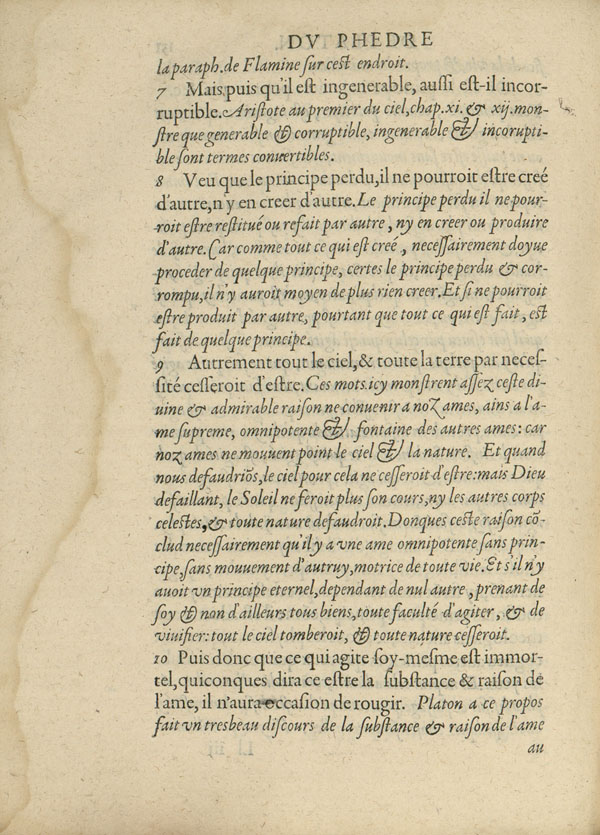 DV PHEDRE
la paraph. de Flamine sur cest endroit.
7 Mais puis qu'il est ingenerable, aussi est-il incor-
ruptible. Aristote au premier du ciel, chap. xi. & xij. mon-
stre que generable & corruptible, ingenerable & incorupti-
ble sont termes conuertibles.
8 Veu que le principe perdu, il ne pourroit estre creé
d'autre, n'y en creer d'autre. Le principe perdu il ne pour-
roit estre restitué ou refait par autre, ny en creer ou produire
d'autre. Car comme tout ce qui est creé, necessairement doyue
proceder de quelque principe, certes le principe perdu & cor-
rompu, il n'y auroit moyen de plus rien creer. Et si ne pourroit
estre produit par autre, pourtant que tout ce qui est fait, est
fait de quelque principe.
9 Autrement tout le ciel, & toute la terre par neces-
sité cesseroit d'estre. Ces mots icy monstrent assez ceste di-
uine & admirable raison ne conuenir a noz ames, ains a l'a-
me supreme, omnipotente & fontaine des autres ames: car
noz ames ne mouuent point le ciel & la nature. Et quand
nous defaudriōs, le ciel pour cela ne cesseroit d'estre: mais Dieu
defaillant, le Soleil ne feroit plus son cours, ny les autres corps
celestes, & toute nature defaudroit. Donques ceste raison cō-
clud necessairement qu'il y a vne ame omnipotente sans prin-
cipe, sans mouuement d'autruy, motrice de toute vie. Et s'il n'y
auoit vn principe eternel, dependant de nul autre, prenant de
soy & non d'ailleurs tous biens, toute faculté d'agiter, & de
viuifier: tout le ciel tomberoit, & toute nature cesseroit.
10 Puis donc que ce qui agite soy-mesme est immor-
tel, quiconques dira ce estre la substance & raison de
l'ame, il n'aura occasion de rougir. Platon a ce propos
fait vn tresbeau discours de la substance & raison de l'ame
au